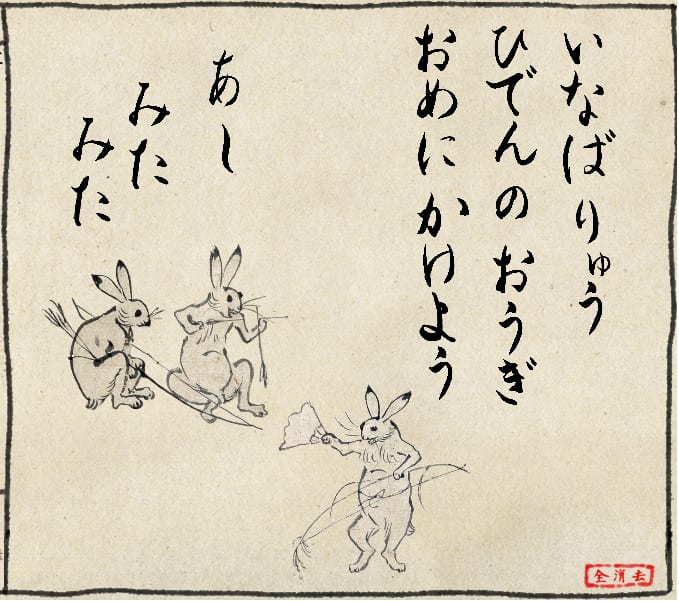 いなばりゅう
ひでんのおうぎ
おめにかけよう
あし
みた
みた
全消去